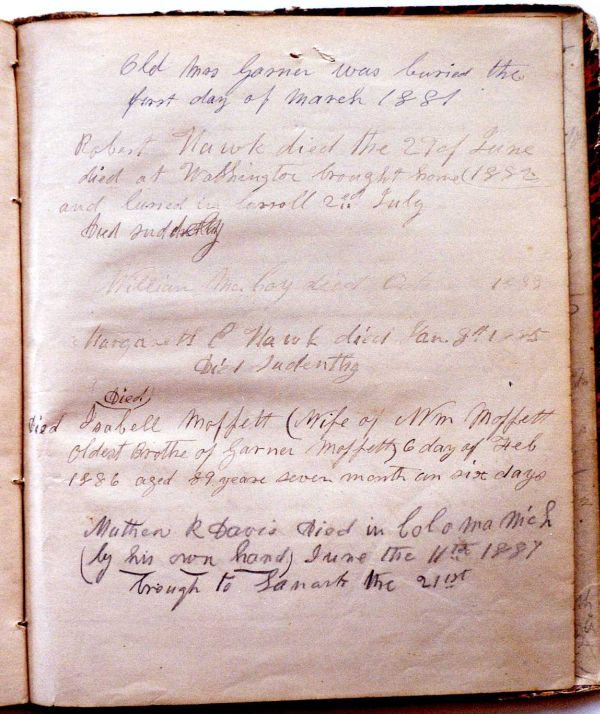 Old Mrs Garner was buried the
first day of March 1881
Robert Hawk died the 29 of June
died at Washington brought home (1882
and buried in Carroll 2nd July
Died suddenly
William McCoy died
Margareth E Hawk died Jan. 8th
Died Sudenthy
Died
Died Isabell Moffett (Wife of Wm Moffett
oldest Brothe of Garner Moffett) 6 day of Feb
1886 aged 89 years seven month an six days
Mathen R Davis Died in Coloma Mich
(by his own hand) June the 11th 1887
brough to Lanark the 21st